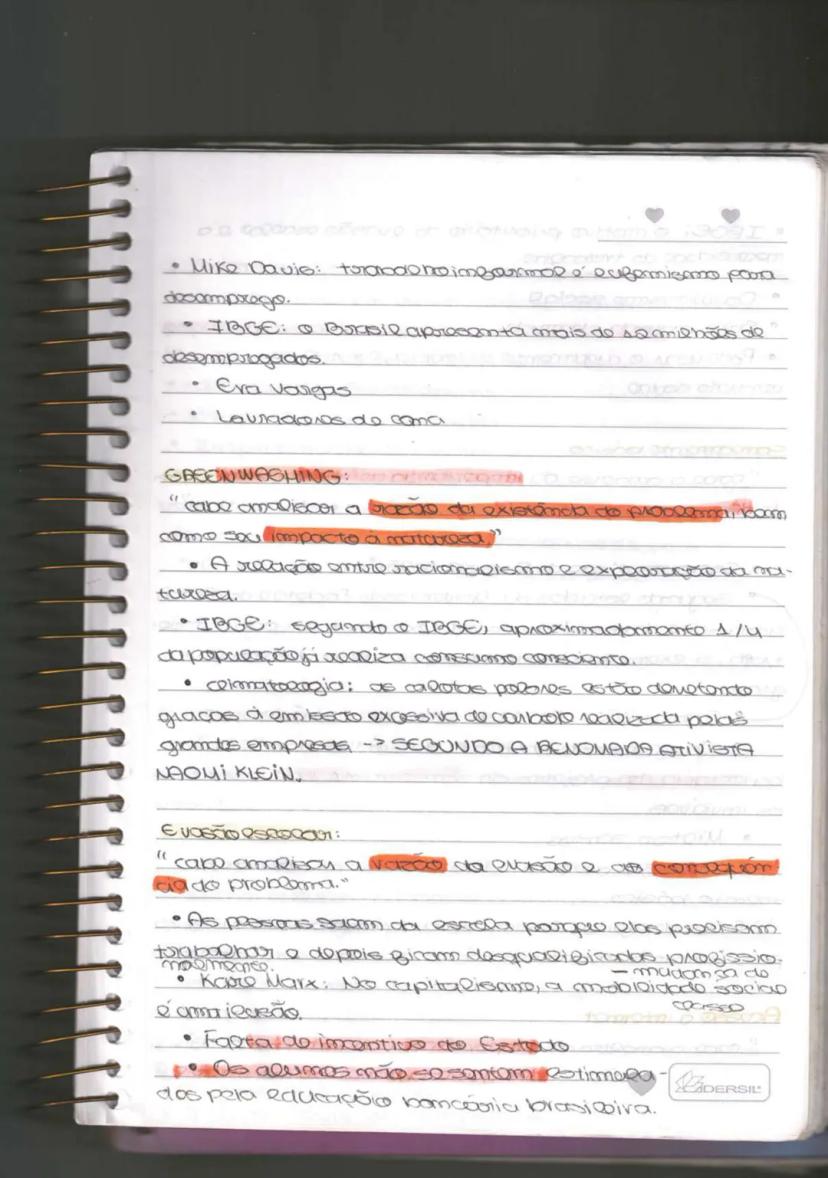 • Mike Davis: trabalho informal é eufemismo para
desemprego.
• IBGE: o Brasil apresenta mais de 12 milhões de
desempregados.
• Eva Vargas
• Lavradores de cana
GREENWASHING:
"cabe analisar a razão da existência do problema, bem
como seu impacto à natureza."
• A relação entre racionalismo e exploração da na-
tureza.
• IBGE: segundo o IBGE, aproximadamente 1/4
da população já realiza consumo consciente.
• climatologia: as calotas polares estão derretendo
graças à emissão excessiva de carbono realizada pelas
grandes empresas -> SEGUNDO A RENOMADA ATIVISTA
NAOMI KLEIN.
Evasão escolar:
"cabe analisar a razão da evasão e as consequên
cia do problema."
• As pessoas saem da escola porque elas precisam
trabalhar e depois ficam desqualificadas profissio-
nalmente.
• Karl Marx: No capitalismo, a mobilidade social
– mudança de
classe
é uma ilusão.
• Falta de incentivo do Estado
• Os alunos não se sentem estimula-
dos pela educação bancária brasileira.
IDERSIL